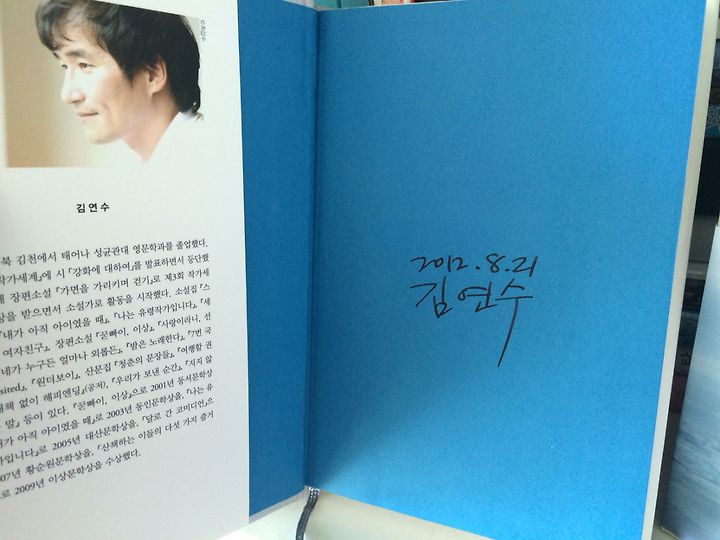 김연수
북 김천에서 태어나 성균관대 영문학과를 졸업했다.
작가세계』에 시 「강화에 대하여」를 발표하면서 등단했
장편소설 『가면을 가리키며 걷기』로 제3회 작가세
상을 받으면서 소설가로 활동을 시작했다. 소설집 『스
『내가 아직 아이였을 때』, 『나는 유령작가입니다』, 『세
여자친구』, 장편소설 『꾿빠이, 이상』, 『사랑이라니, 선
『네가 누구든 얼마나 외롭든』, 『밤은 노래한다』, 『7번 국
sited』, 『원더보이』, 산문집 『청춘의 문장들』, 『여행할 권
대책 없이 해피엔딩』(공저), 『우리가 보낸 순간』, 『지지 않
말』 등이 있다. 『꾿빠이, 이상』으로 2001년 동서문학상
가 아직 아이였을 때』로 2003년 동인문학상을, 『나는 유
가입니다』로 2005년 대산문학상을, 「달로 간 코미디언」으
07년 황순원문학상을, 「산책하는 이들의 다섯 가지 즐거
로 2009년 이상문학상을 수상했다.
2012.8.21
김연수